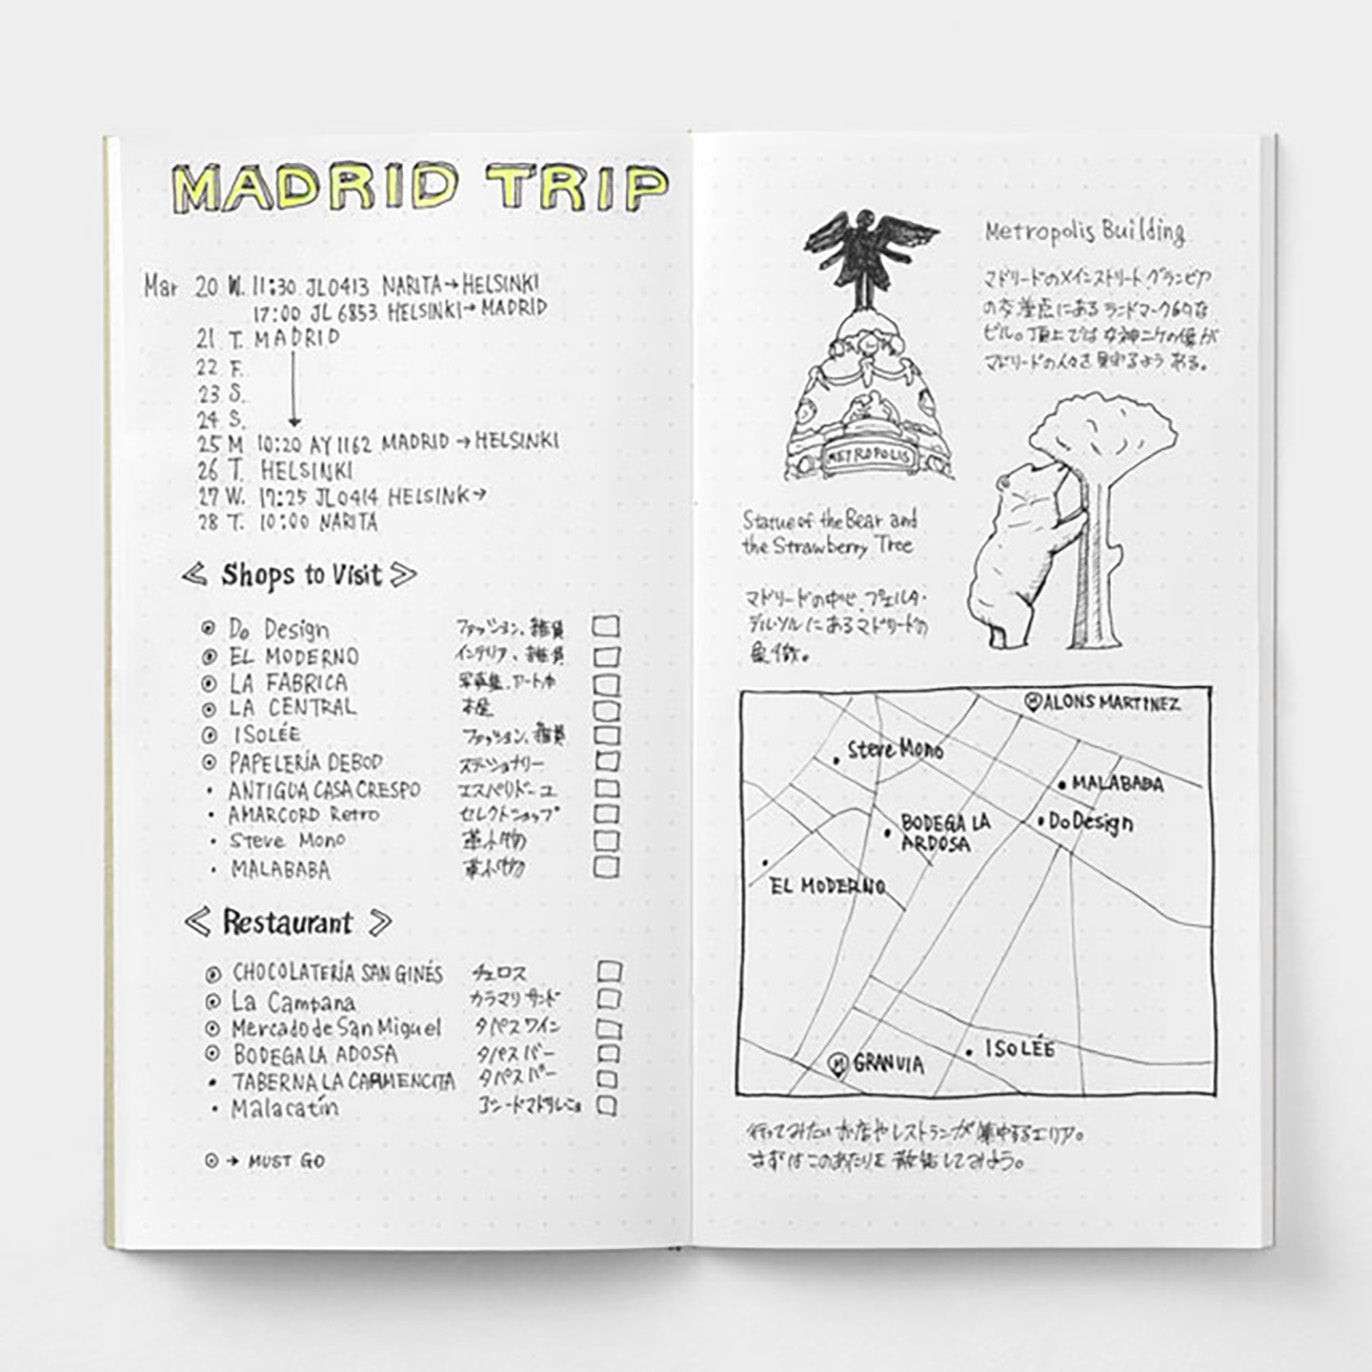 MADRID TRIP
Mar 20 W. 11:30 JL0413 NARITA→HELSINKI
17:00 JL 6853 HELSINKI→MADRID
21 T. MADRID
22 F.
23 S.
24 S.
25 M 10:20 AY1162 MADRID→HELSINKI
26 T. HELSINKI
27 W. 17:25 JL0414 HELSINK→
28 T. 10:00 NARITA
≪ Shops to Visit ≫
◉ Do Design ファッション、雑貨 □
◉ EL MODERNO インテリア、雑貨 □
◉ LA FABRICA 写真集、アート本 □
◉ LA CENTRAL 本屋 □
◉ ISOLÉE ファッション、雑貨 □
◉ PAPELERÍA DEBOD ステーショナリー □
• ANTIGUA CASA CRESPO エスパドリーユ □
• AMARCORD Retro セレクトショップ □
• Steve Mono 革小物 □
• MALABABA 革小物 □
≪ Restaurant ≫
◉ CHOCOLATERÍA SAN GINÉS チュロス □
◉ La Campana カラマリサンド □
◉ Mercado de San Miguel タパス ワイン □
◉ BODEGA LA ADOSA タパス バー □
• TABERNA LA CARMENCITA タパス バー □
• Malacatín マドリレーニョ □
◉ → MUST GO
METROPOLIS
Metropolis Building
マドリードのメインストリート グランビア
の交差点にあるランドマーク的な
ビル。頂上では女神ニケの像が
マドリードの人々を見守るようある。
Statue of the Bear and
the Strawberry Tree
マドリードの中心、プエルタ・
デル・ソルにあるマドリードの
象徴。
Ⓜ ALONS MARTINEZ
Steve Mono
MALABABA
Do Design
BODEGA LA
ARDOSA
EL MODERNO
ISOLÉE
Ⓜ GRANVIA
行ってみたいお店やレストランが集中するエリア。
まずはこのあたりを散策してみよう。